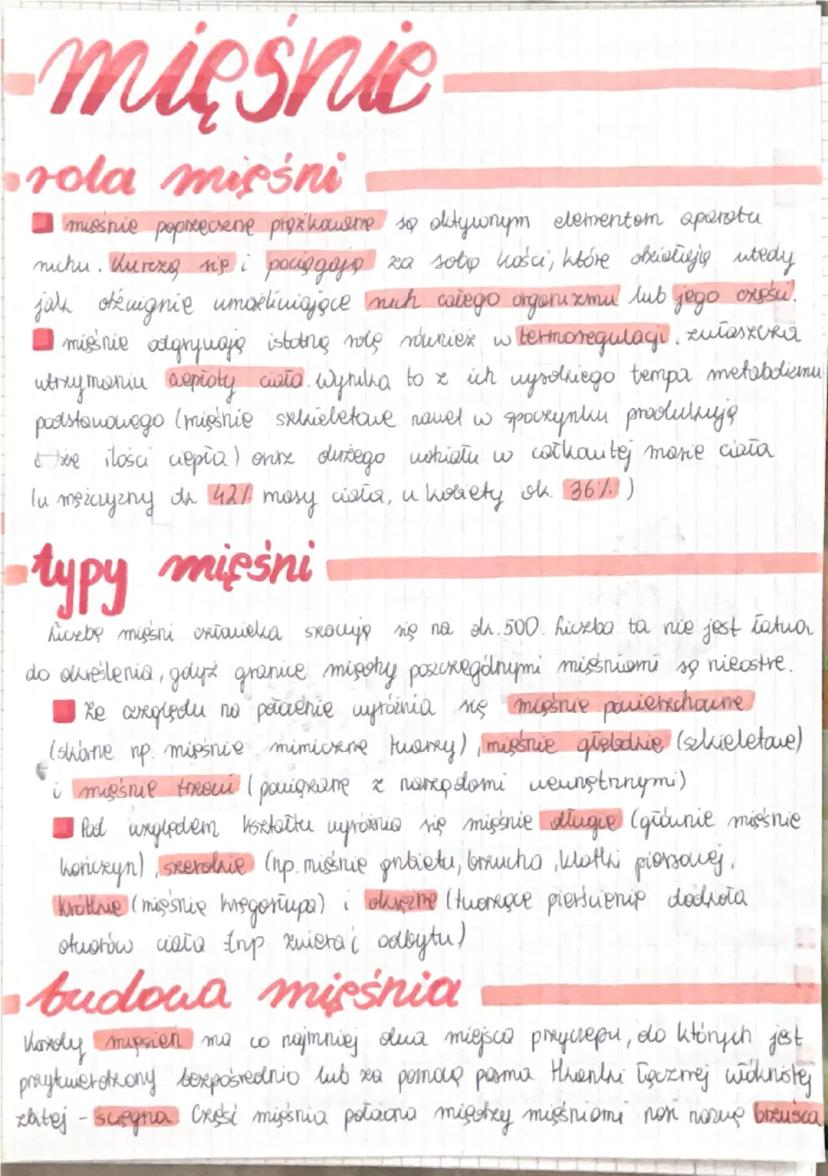 mięśnie
rola mięśni
mięśnie poprzecznie prążkowane są aktywnym elementem aparatu
ruchu. Kurczą się i pociągają za sobą kości, które działają wtedy
jak dźwignie umożliwiające ruch całego organizmu lub jego części.
mięśnie odgrywają istotną rolę również w termoregulacji, zwłaszcza
utrzymaniu ciepłoty ciała. Wynika to z ich wysokiego tempa metabolizmu
podstawowego (mięśnie szkieletowe nawet w spoczynku produkują
ilości ciepła) oraz dużego udziału w całkowitej masie ciała
(u mężczyzny ok. 42% masy ciała, u kobiety ok. 36%)
typy mięśni
Liczbę mięśni człowieka szacuję się na ok. 500. Liczba ta nie jest łatwa
do określenia, gdyż granice między poszczególnymi mięśniami są nieostre.
Ze względu na położenie wyróżnia się mięśnie powierzchowne
(skórne np. mięśnie mimiczne twarzy), mięśnie głębokie (szkieletowe)
i mięśnie trzewi (powiązane z narządami wewnętrznymi)
Pod względem kształtu wyróżnia się mięśnie długie (głównie mięśnie
kończyn), szerokie (np. mięśnie grzbietu, brzucha, klatki piersiowej,
krótkie (mięśnie kręgosłupa) i okrężne (tworzące pierścienie dookoła
otworów ciała np. zwieracz odbytu)
budowa mięśnia
Każdy mięsień ma co najmniej dwa miejsca przyczepu, do których jest
przytwierdzony bezpośrednio lub za pomocą pasma tkanki łącznej włóknistej
zbitej - ścięgna. Część mięśnia położona między mięśniami nosi nazwę brzuśca